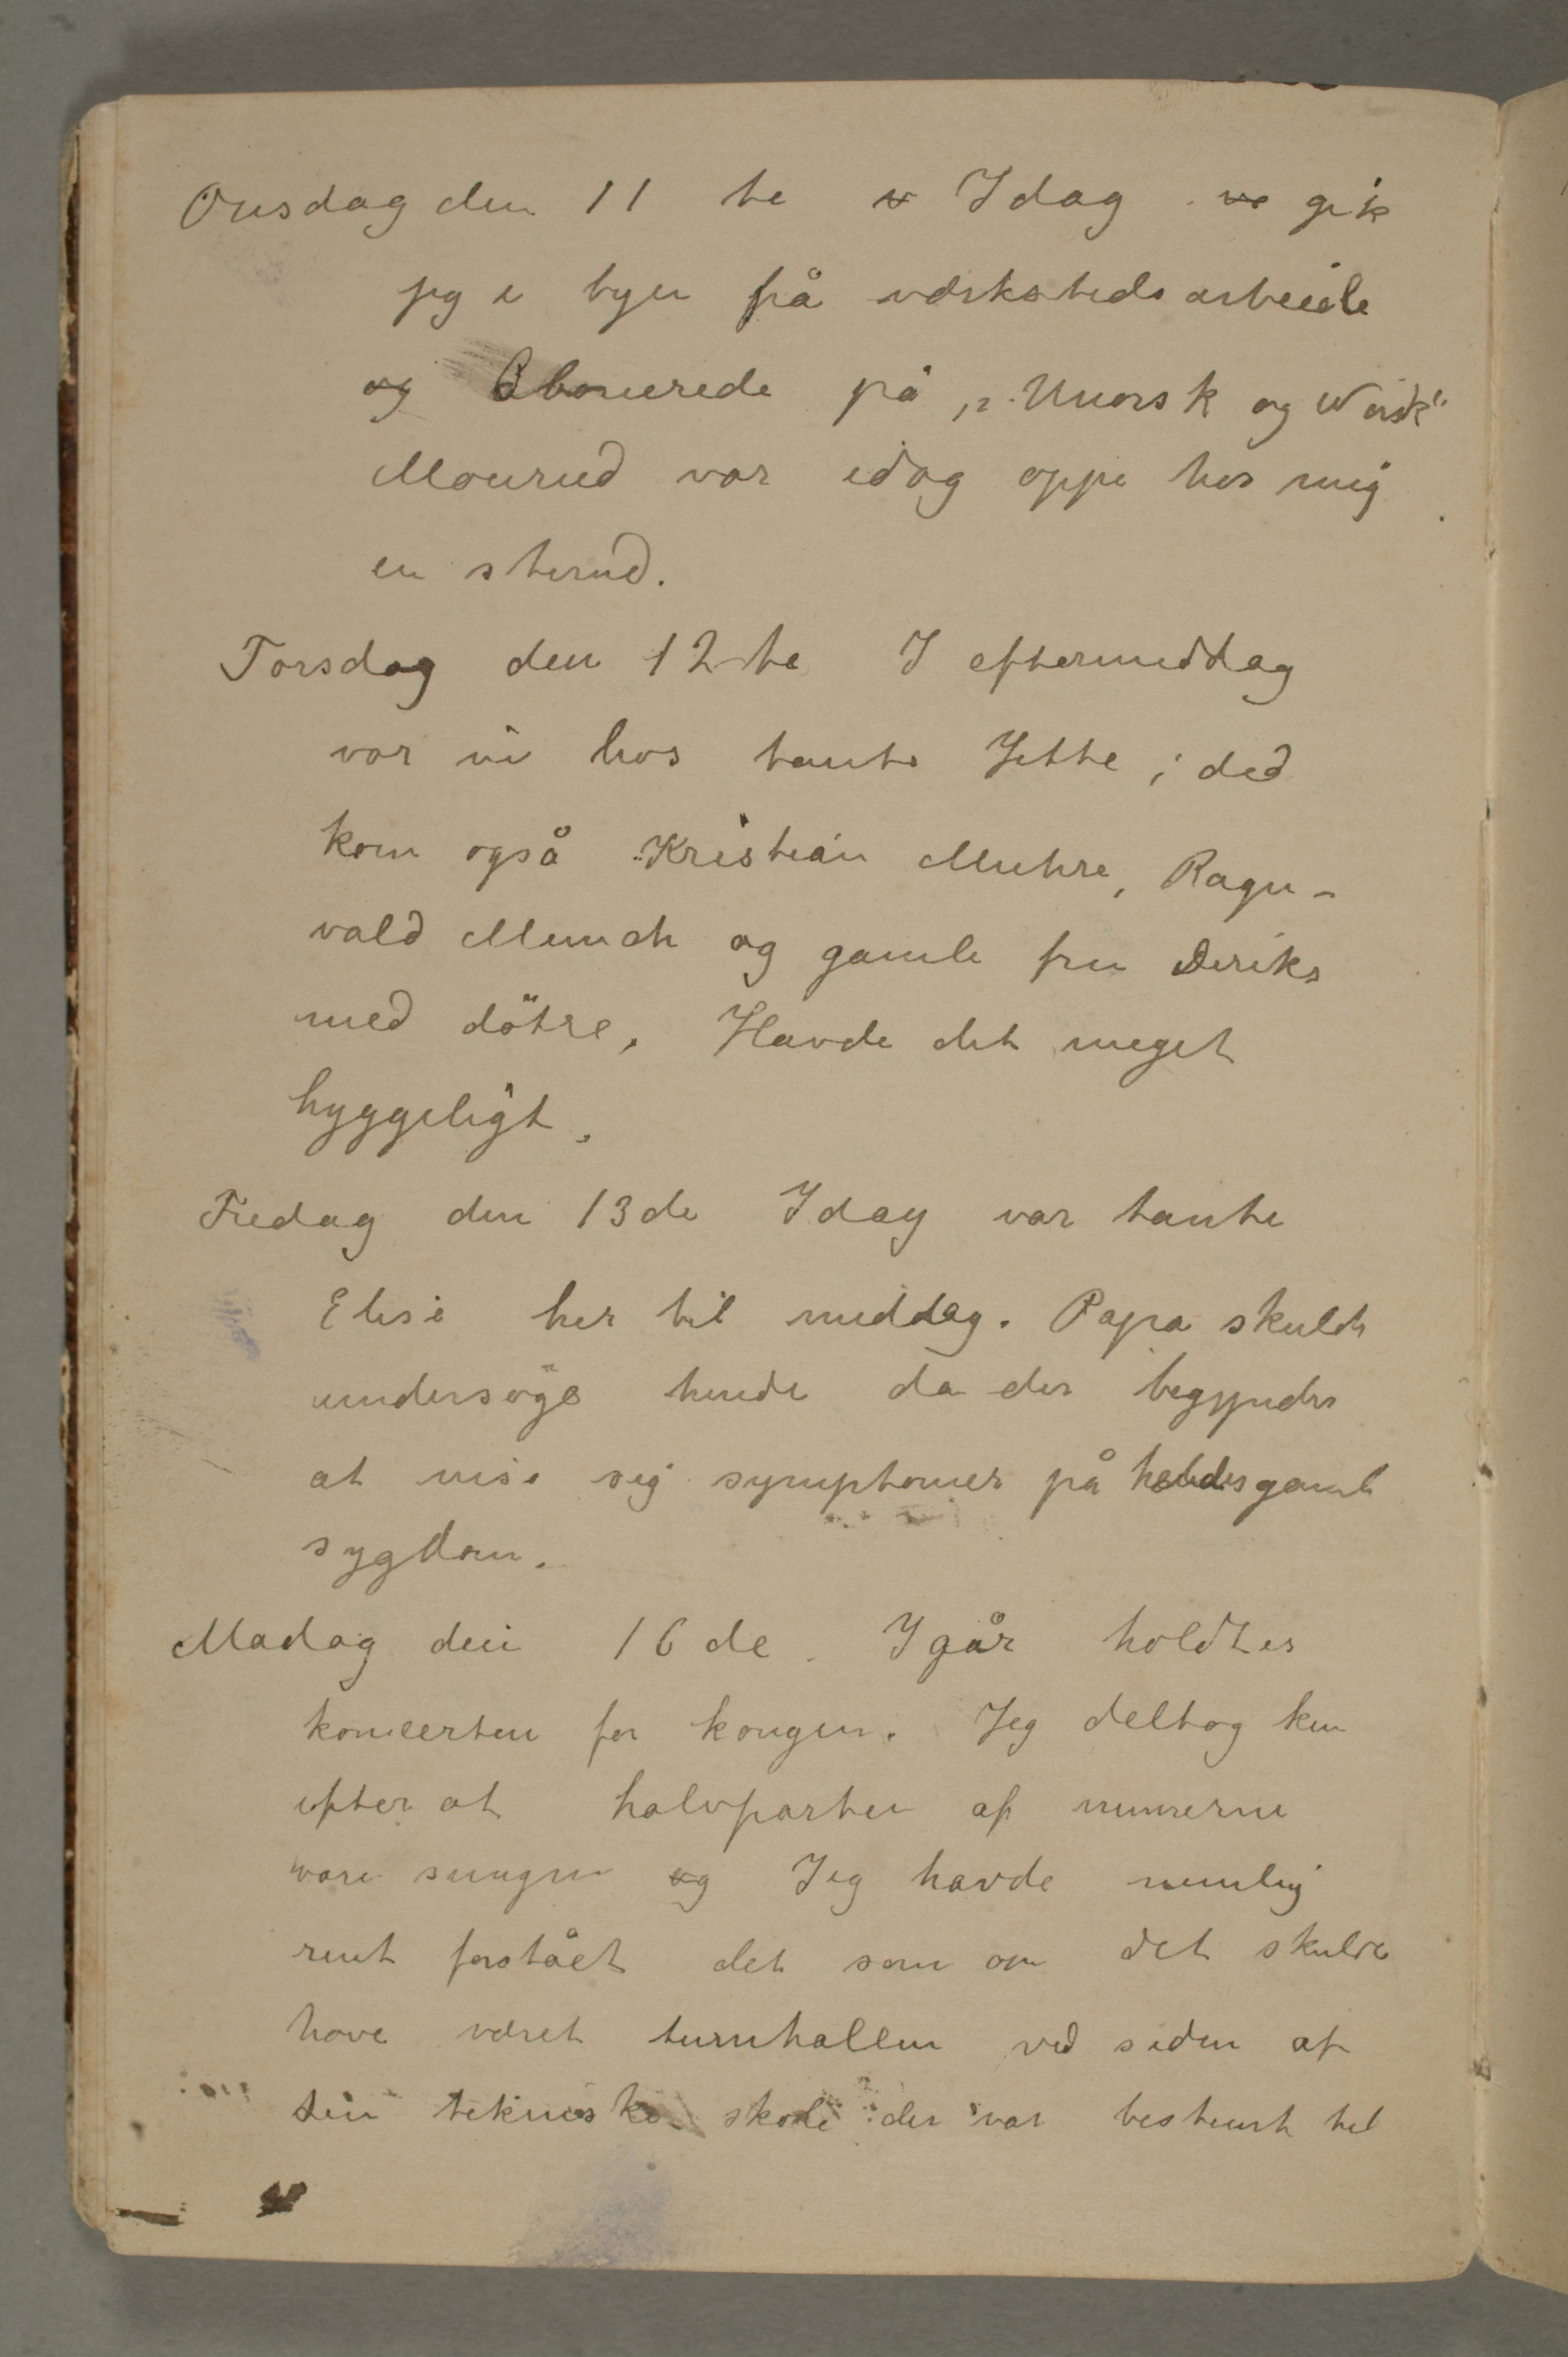 Onsdag den 11 te Idag gik
jeg i byen på værkstedsarbeide
og Abonerede på „Unorsk og Norsk"
Mourud var idag oppe hos mig
en stund.
Torsdag den 12te I eftermiddag
var vi hos tante Jette; did
kom også Kristian Muhre, Ragn-
vald Munch og gamle fru Diriks
med dötre. Havde det meget
hyggeligt.
Fredag den 13de Idag var tante
Elise her til middag. Papa skulde
undersöge hende da der begyndes
at vise sig symptomer på hendes gamle
sygdom.
Madag den 16de. Igår holdtes
koncerten for kongen. Jeg deltog kun
efter at halvparten af numerne
vare sungne og Jeg havde nemlig
rent forstået det som om det skulde
have været turnhallen ved siden af
den tekniske skole der var bestemt til